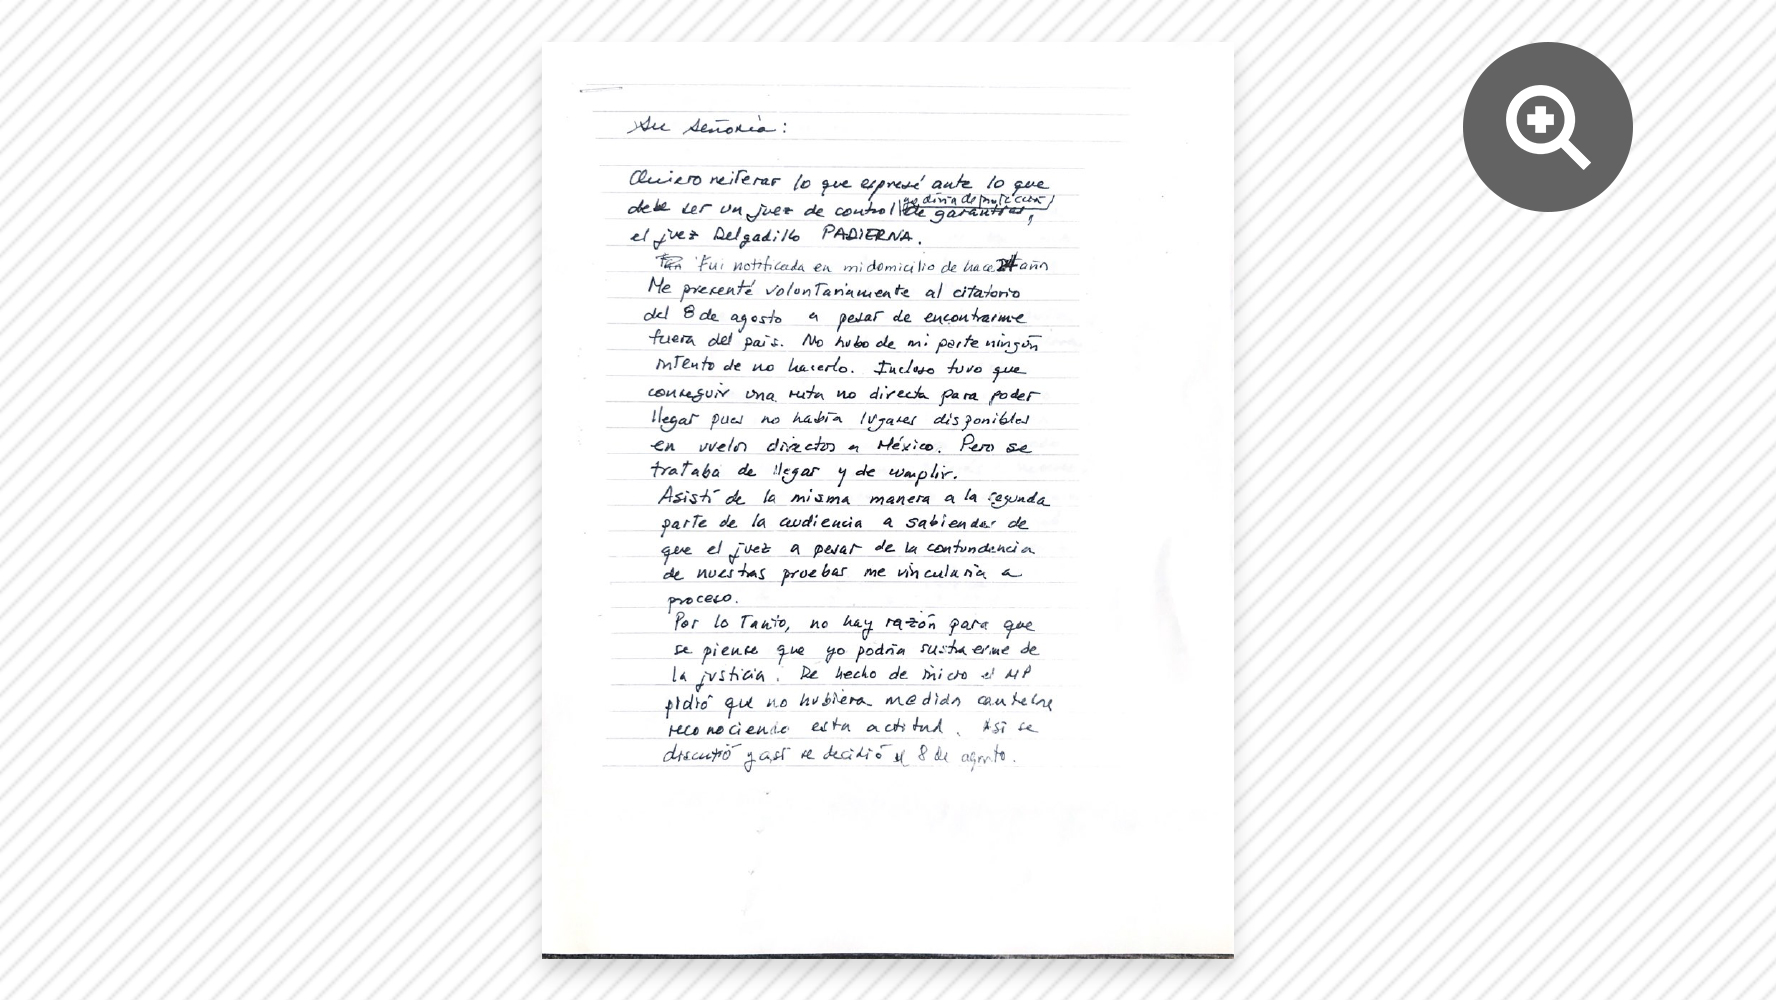 Su Señoría:
Quiero reiterar lo que expresé ante lo que
debe ser un juez de control de garantías,
el juez Delgadillo PADIERNA.
Fui notificada en mi domicilio de hace años
Me presenté voluntariamente al citatorio
del 8 de agosto a pesar de encontrarme
fuera del país. No hubo de mi parte ningún
intento de no hacerlo. Incluso tuve que
conseguir una ruta no directa para poder
llegar pues no había lugares disponibles
en vuelos directos a México. Pero se
trataba de llegar y de cumplir.
Asistí de la misma manera a la segunda
parte de la audiencia a sabiendas de
que el juez a pesar de la contundencia
de nuestras pruebas me vincularía a
proceso.
Por lo Tanto, no hay razón para que
se piense que yo podría sustraerme de
la justicia. De hecho de inicio el MP
pidió que no hubiera medida cautelar
reconociendo esta actitud. Así se
discutió y así se decidió el 8 de agosto.